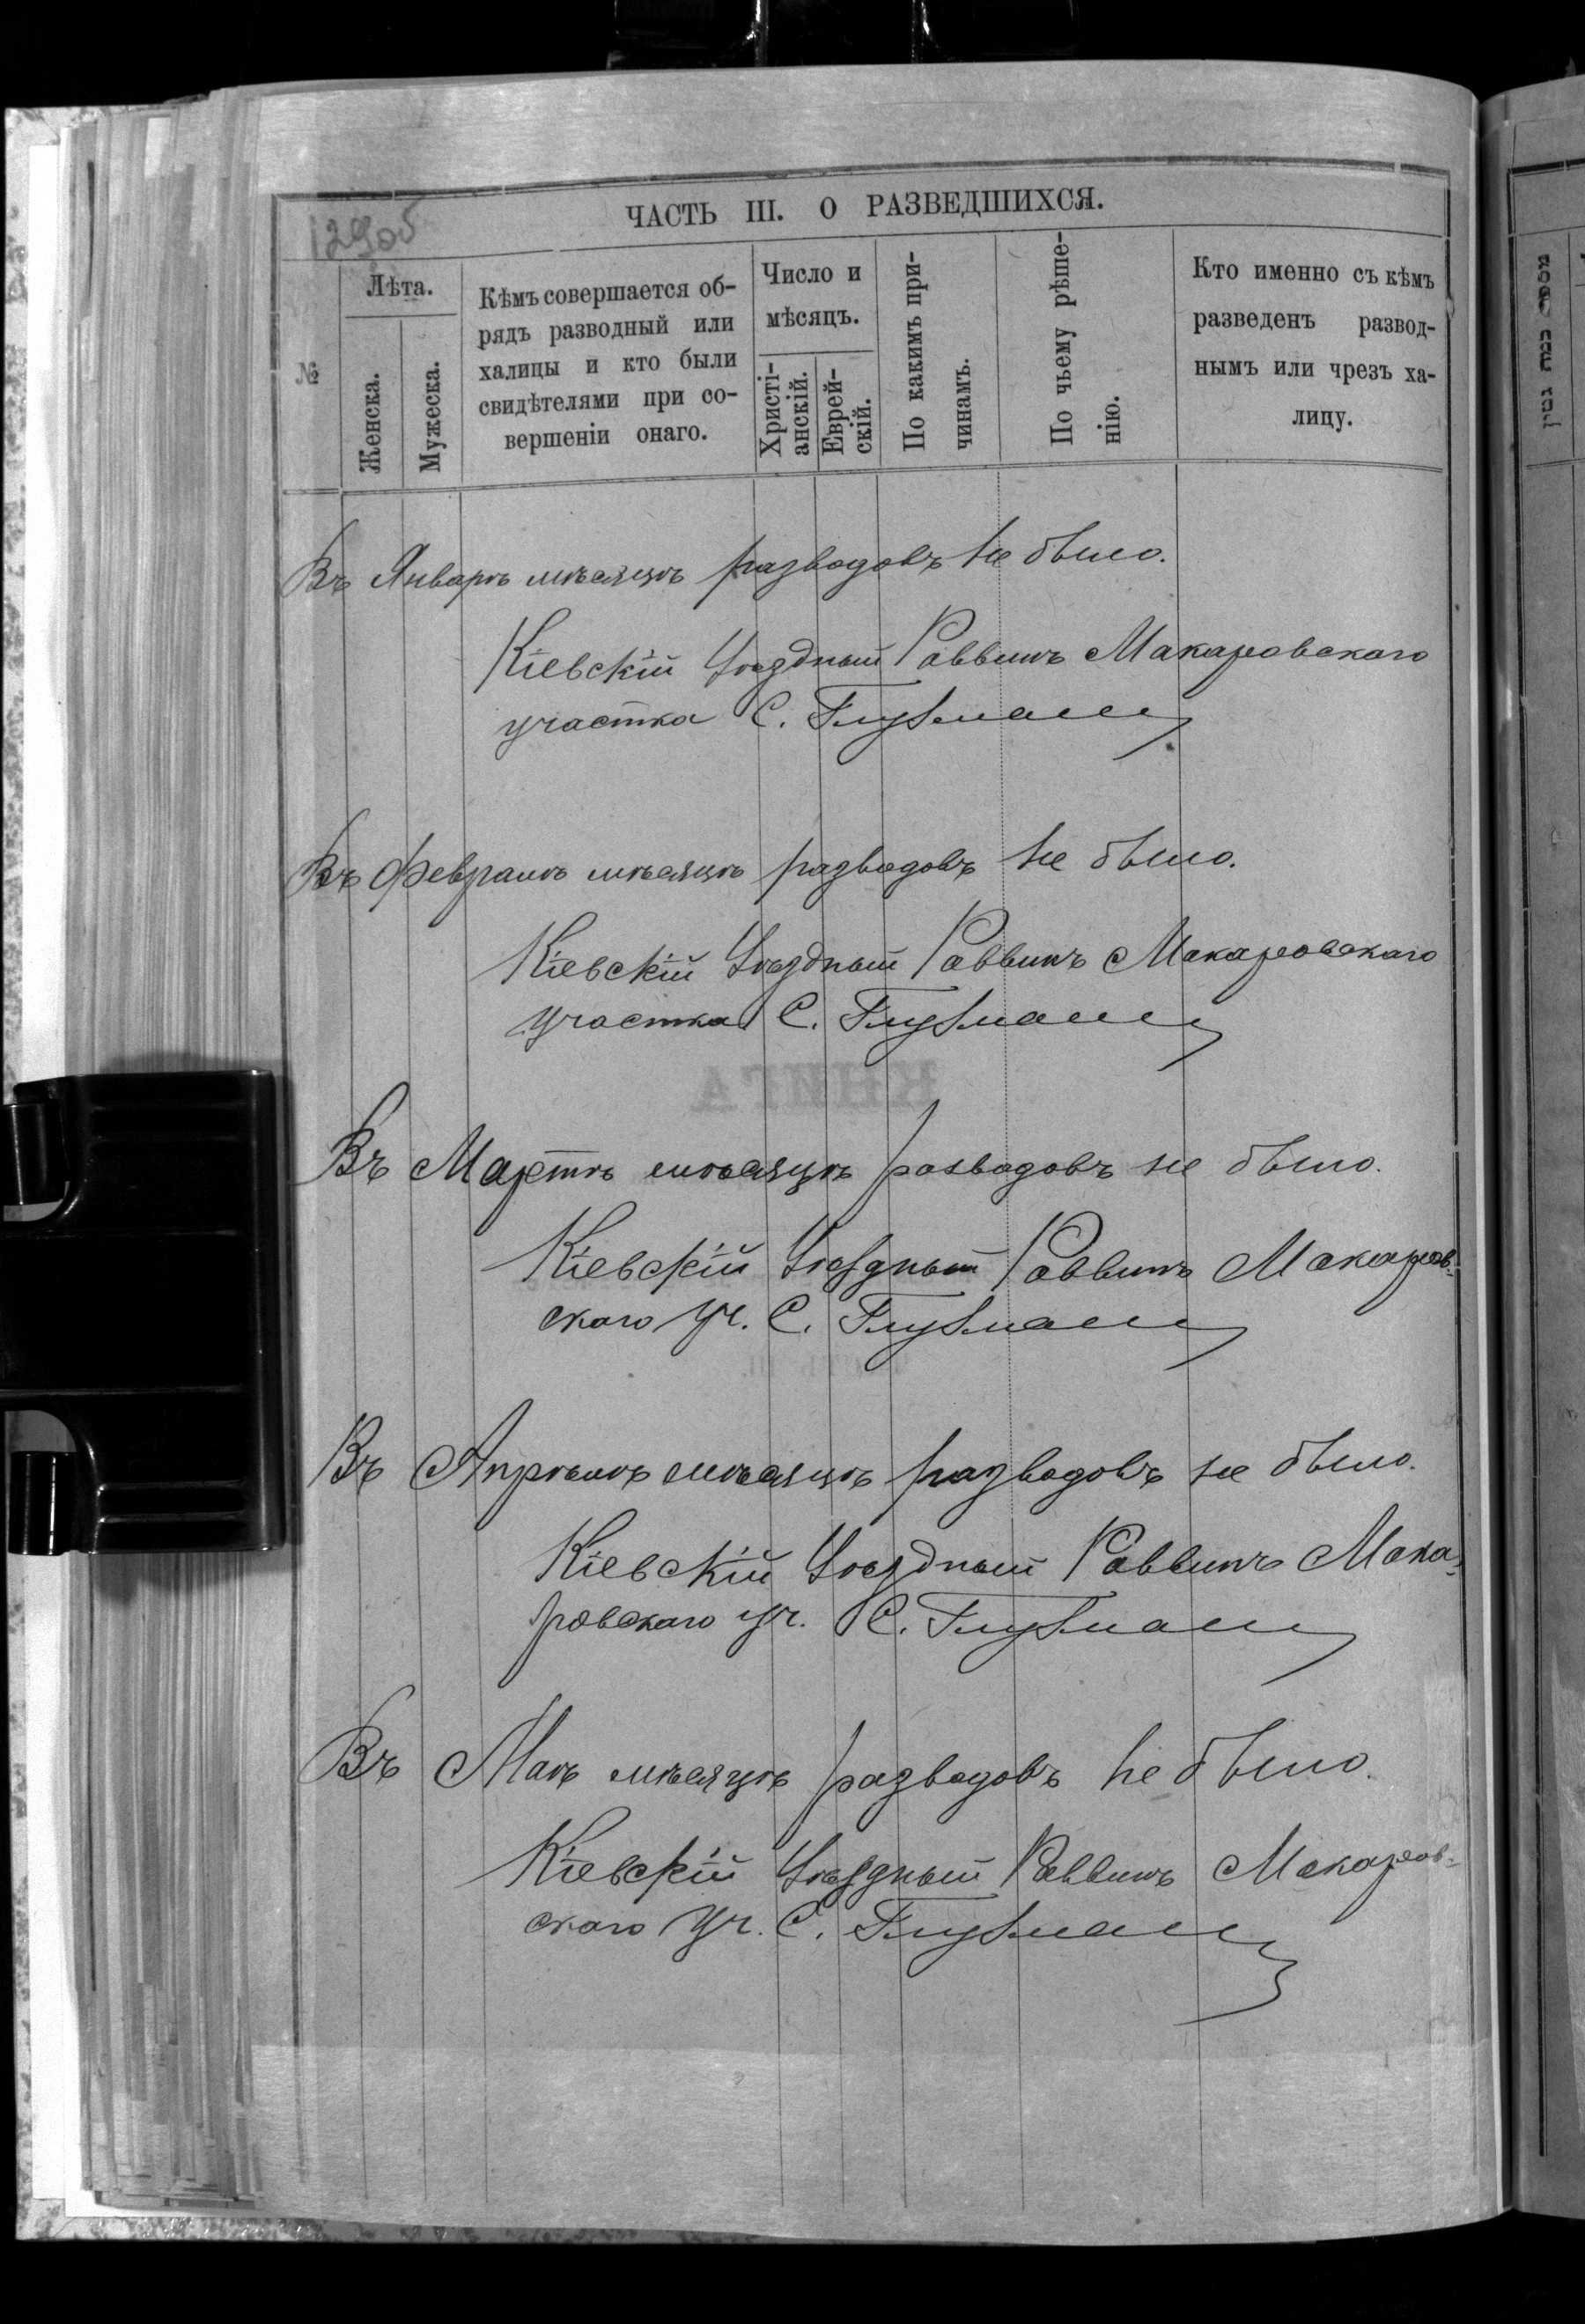 129об
ЧАСТЬ III. О РАЗВЕДШИХСЯ.
№
Лѣта.
Женска.
Мужеска.
Кѣмъ совершается об-
рядъ разводный или
халицы и кто были
свидѣтелями при со-
вершеніи онаго.
Число и
мѣсяцъ.
Христі-
анскій.
Еврей-
скій.
По какимъ при-
чинамъ.
По чьему рѣше-
нію.
Кто именно съ кѣмъ
разведенъ развод-
нымъ или чрезъ ха-
лицу.
Въ Январѣ мѣсяцѣ разводовъ не было.
Кіевскій Уѣздный Раввинъ Макаровскаго
участка С. Глузман
Въ Февралѣ мѣсяцѣ разводовъ не было.
Кіевскій Уѣздный Раввинъ Макаровскаго
участка С. Глузман
КНИГА
Въ Мартѣ мѣсяцѣ разводовъ не было.
Кіевскій Уѣздный Раввинъ Макаров-
скаго Уч. С. Глузман
Въ Апрѣлѣ мѣсяцѣ разводовъ не было.
Кіевскій Уѣздный Раввинъ Мака-
ровскаго уч. С. Глузман
Въ Маѣ мѣсяцѣ разводовъ не было.
Кіевскій Уѣздный Раввинъ Макаров-
скаго Уч. С. Глузман